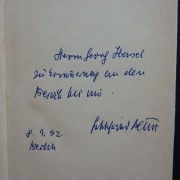 Herrn Georg Hensel
zur Erinnerung an den
Besuch bei mir.
8. 9. 92
Berlin